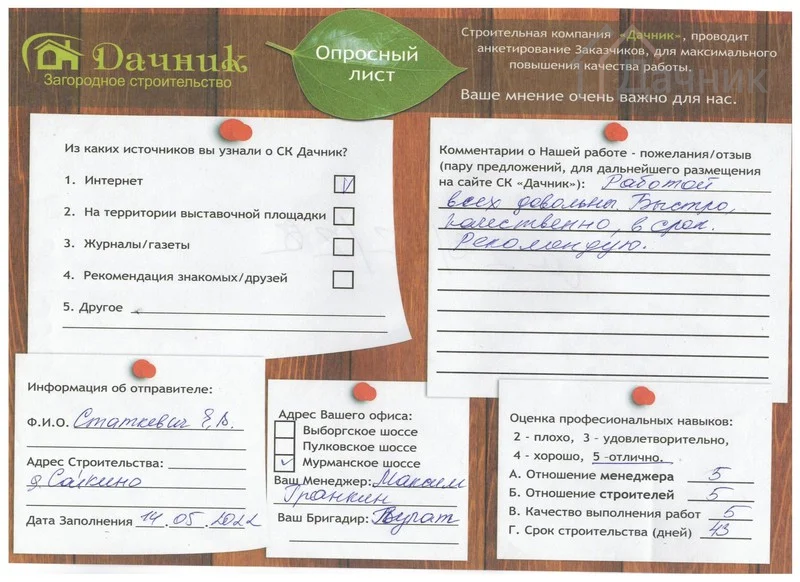 Дачник
Загородное строительство
Опросный
лист
Строительная компания «Дачник», проводит
анкетирование Заказчиков, для максимального
повышения качества работы.
Дачник
Ваше мнение очень важно для нас.
Из каких источников вы узнали о СК Дачник?
1. Интернет
2. На территории выставочной площадки
3. Журналы/газеты
4. Рекомендация знакомых/друзей
5. Другое
Комментарии о Нашей работе - пожелания/отзыв
(пару предложений, для дальнейшего размещения
на сайте СК «Дачник»): Работой
всех довольны. Быстро,
качественно, в срок.
Рекомендую.
Информация об отправителе:
Ф.И.О. Статкевич Е.В.
Адрес Строительства:
д. Сайкино
Дата Заполнения 14.05.2022
Адрес Вашего офиса:
Выборгское шоссе
Пулковское шоссе
Мурманское шоссе
Ваш Менеджер: Максим
Гранкин
Ваш Бригадир:
Оценка профессиональных навыков:
2 - плохо, 3 - удовлетворительно,
4 - хорошо, 5 -отлично.
А. Отношение менеджера 5
Б. Отношение строителей 5
В. Качество выполнения работ 5
Г. Срок строительства (дней) 43